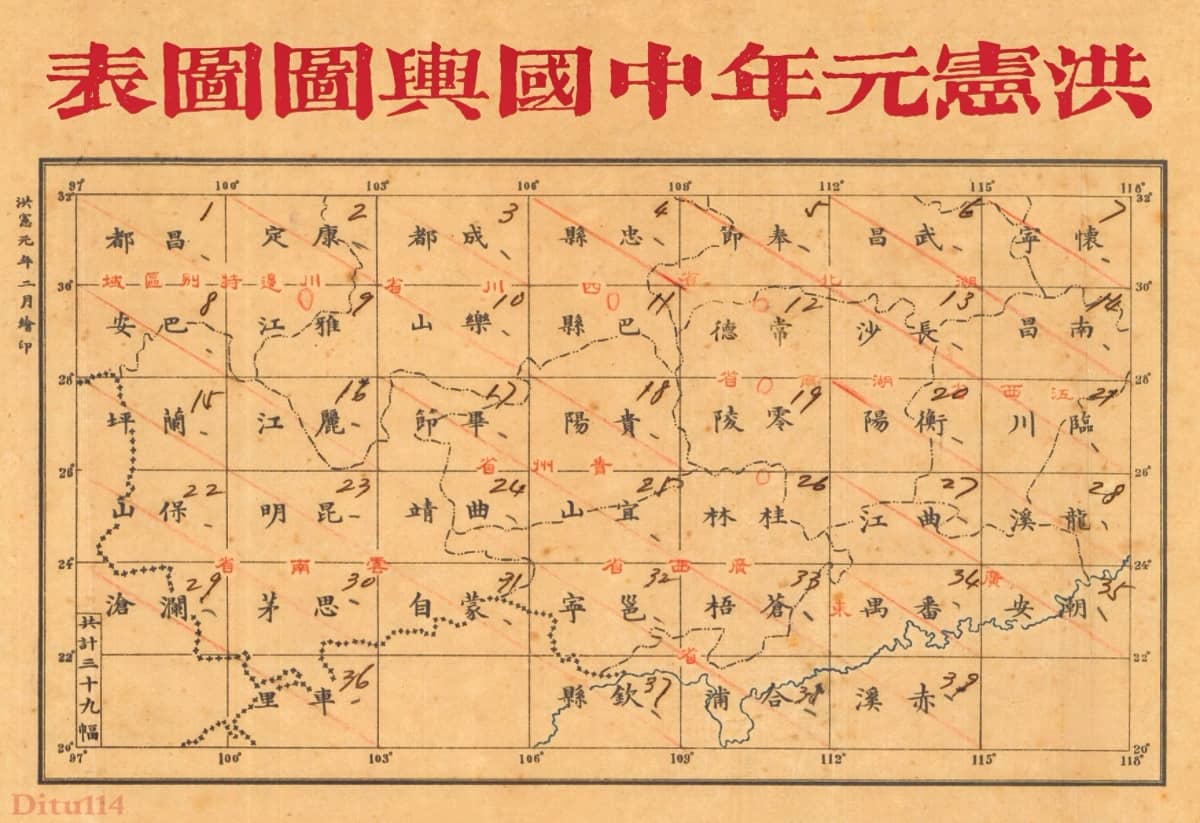 洪憲元年中國輿圖圖表
洪憲元年二月繪印
97° 100° 103° 106° 109° 112° 115° 118°
32° 32°
昌都 1
康定 2
成都 3
忠縣 4
奉節 5
武昌 6
懷寧 7
川邊特別區域
四川省
湖北省
30° 30°
巴安 8
雅江 9
樂山 10
巴縣 11
常德 12
長沙 13
南昌 14
湖南省
江西省
28° 28°
蘭坪 15
麗江 16
畢節 17
貴陽 18
零陵 19
衡陽 20
臨川 21
貴州省
26° 26°
保山 22
昆明 23
曲靖 24
宜山 25
桂林 26
曲江 27
龍溪 28
雲南省
廣西省
廣東省
24° 24°
瀾滄 29
思茅 30
蒙自 31
邕寧 32
蒼梧 33
番禺 34
潮安 35
22° 22°
車里 36
欽縣 37
合浦 38
赤溪 39
共計三十九幅
20° 20°
97° 100° 103° 106° 109° 112° 115° 118°
Ditu114